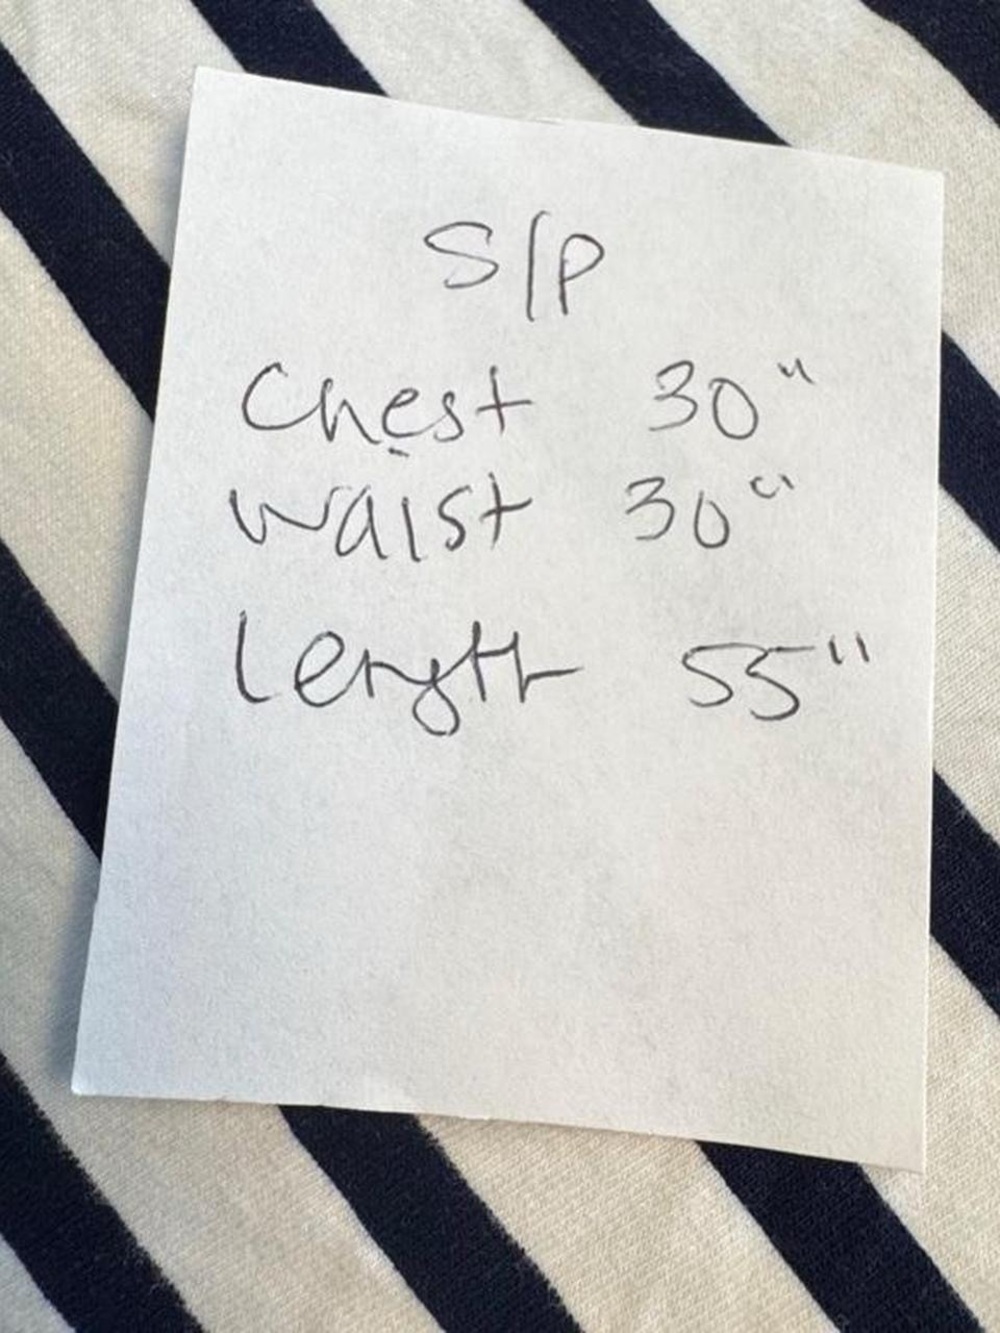 S/P
Chest 30"
Waist 30"
Length 55"